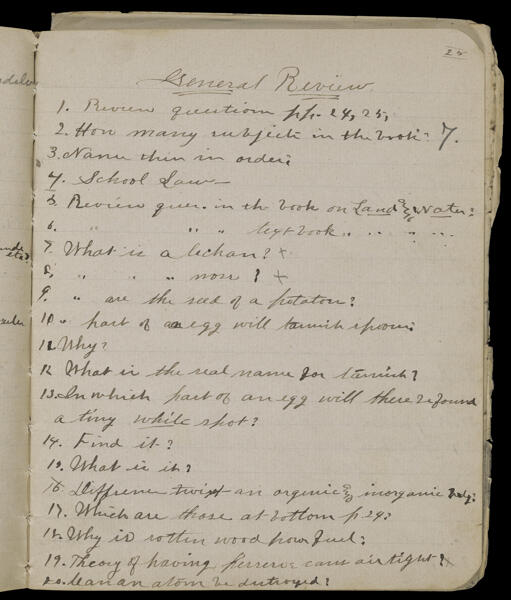 25
General Review
1. Review questions pp. 24, 25,
2. How many subjects in the book? 7.
3. Name them in order:
4. School Law—
5. Review ques. in the book on Land & Water:
6. " " " text book " " "
7. What is a lichan? +
8. " " " moss? +
9. " are the seed of a potatoe?
10 " part of an egg will tarnish spoon:
11. Why?
12. What is the real name for tarnish?
13. In which part of an egg will there be found
a tiny white spot?
14. Find it?
15. What is it?
16. Diffrence twixt an organic & inorganic body:
17. Which are those at bottom p 24?
18. Why is rotten wood poor fuel?
19. Theory of having cans air tight? +
20. Can an atom be destroyed?